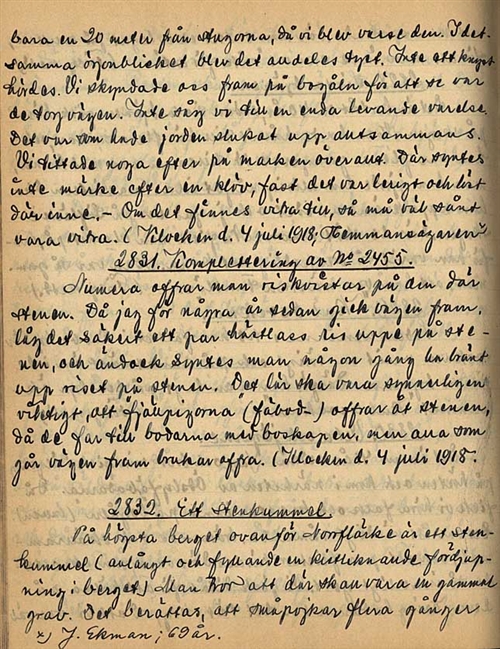 bara en 20 meter från stugorna, då vi blev varse den. I det-
samma ögonblicket blev det alldeles tyst. Inte ett knyst
hördes. Vi skyndade oss fram på bogåln för att se var
de tog vägen. Inte såg vi till en enda levande varelse.
Det var som hade jorden slukat upp alltsammans.
Vi tittade noga efter på marken överallt. Där syntes
inte märke efter en klöv, fast det var lerigt och löst
där inne. – Om det finnes vitra till, så må väl sånt
vara vitra. (Kilocken d. 4 juli 1918, Hemmansägaren x)
2831. Komplettering av No 2455.
Numera offrar man riskvistar på den där
stenen. Då jag för några år sedan gick vägen fram,
låg det säkert ett par hästlass ris uppe på ste-
nen, och ändock syntes man någon gång ha bränt
upp riset på stenen. Det lär ska vara synnerligen
viktigt, att fjäupigorna (fäbod-) offrar åt stenen,
då de far till bodarna med boskapen, men alla som
går vägen fram brukar offra. (Kilocken d. 4 juli 1918.
2832. Ett stenkummel.
På högsta berget ovanför Norrfläcke är ett sten-
kummel (avlångt och fyllande en kistliknande fördjup-
ning i berget) Man tror att där skall vara en gammal
grav. Det berättas, att småpojkar flera gånger
x) J. Ekman; 69 år.